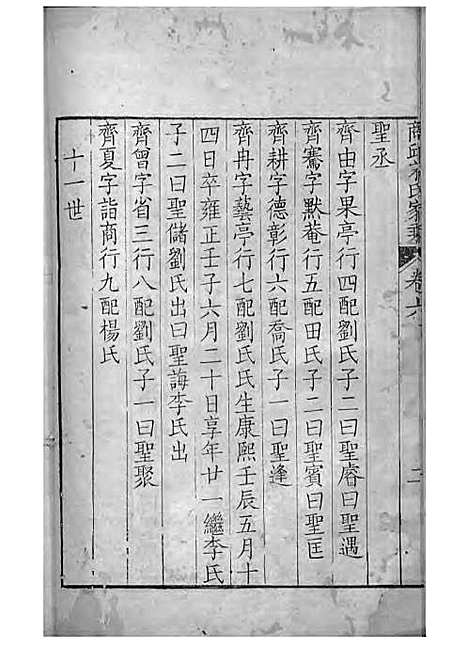 聖丞
齊由字果亭行四配劉氏子二曰聖睿曰聖遇
齊騫字默菴行五配田氏子二曰聖賓曰聖匡
齊耕字德彰行六配喬氏子一曰聖逢
齊冉字藝亭行七配劉氏氏生康熙壬辰五月十
四日卒雍正壬子六月二十日享年廿一繼李氏
子二曰聖儲劉氏出曰聖誨李氏出
齊曾字省三行八配劉氏子一曰聖聚
齊夏字詣商行九配楊氏
十一世
卷六
二